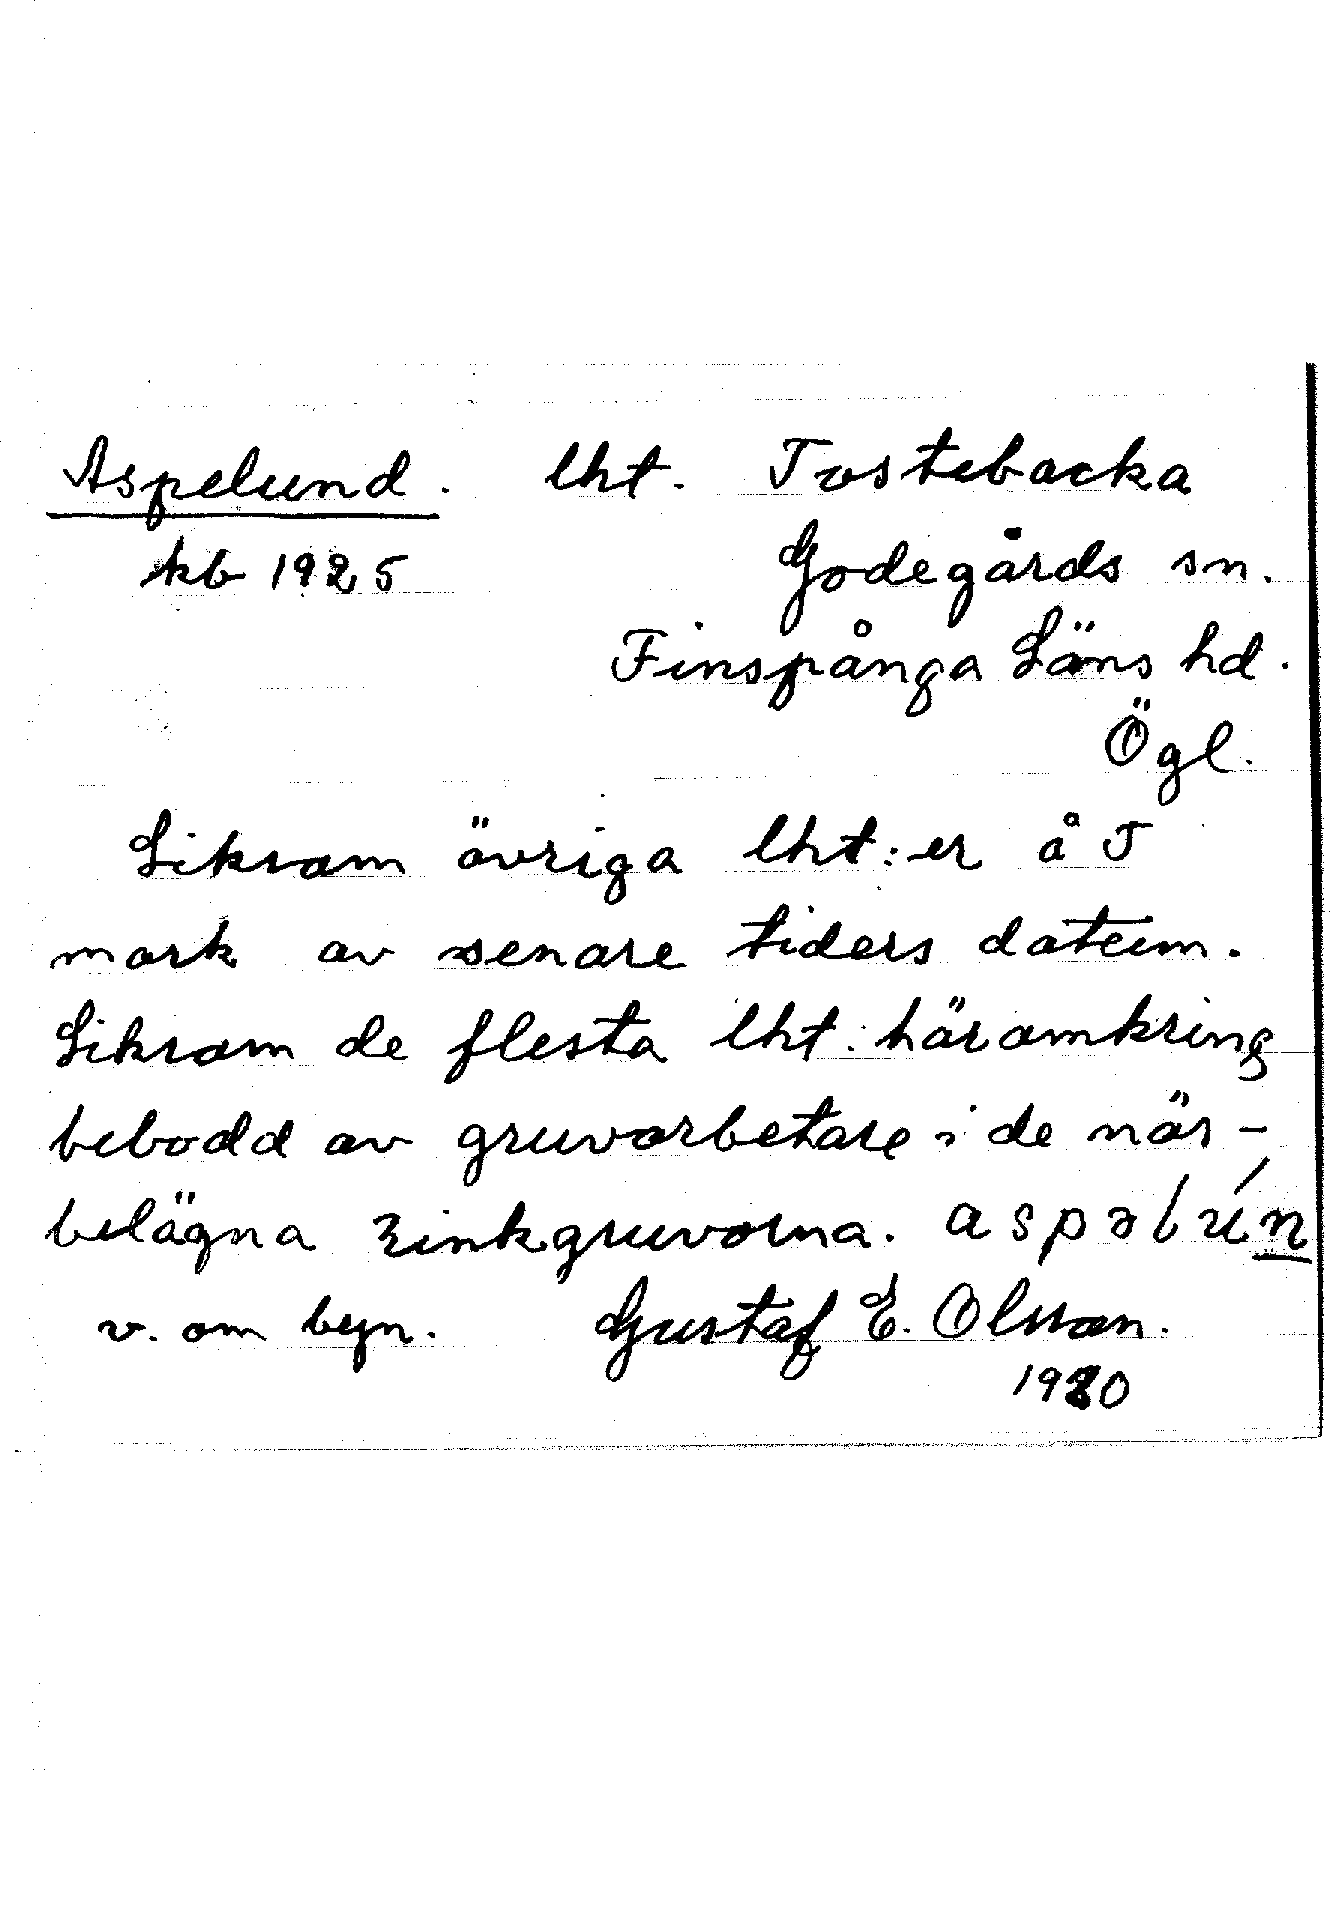 Aspelund. lht. Tostebacka
kb 1925 Godegårds sn.
Finspånga Läns hd.
Ögl.
Liksom övriga lht:er å T
mark av senare tiders datum.
Liksom de flesta lht. häromkring
bebodd av gruvarbetare i de när-
belägna zinkgruvorna. aspəlún
v. om byn. Gustaf E. Olsson.